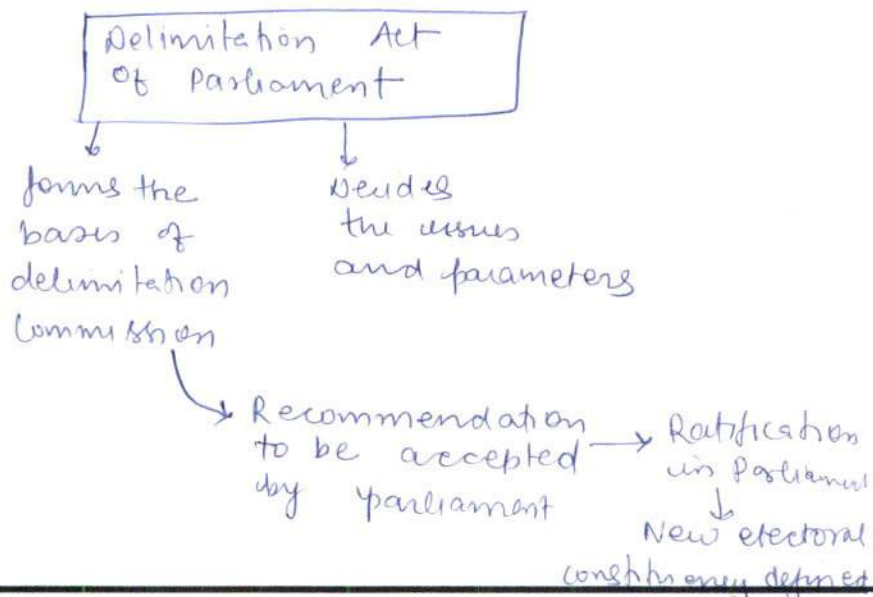 Delimitation Act
of Parliament
forms the
bases of
delimitation
Commission
Decides
the issues
and parameters
Recommendation
to be accepted
by parliament
Ratification
in Parliament
New electoral
constituency defined